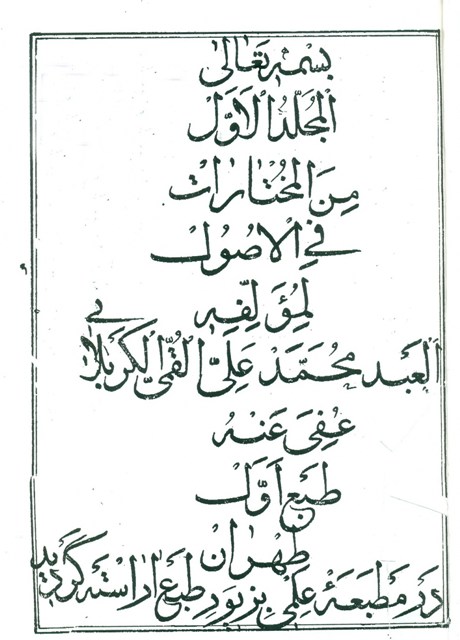 بسمه تعالى
المجلد الاول
من المختارات
في الاصول
لمؤلفه
العبد محمد علي القمي الكربلائي
عفي عنه
طبع اول
طهران
در مطبعهٔ علمي بزيور طبع اراسته گرديد